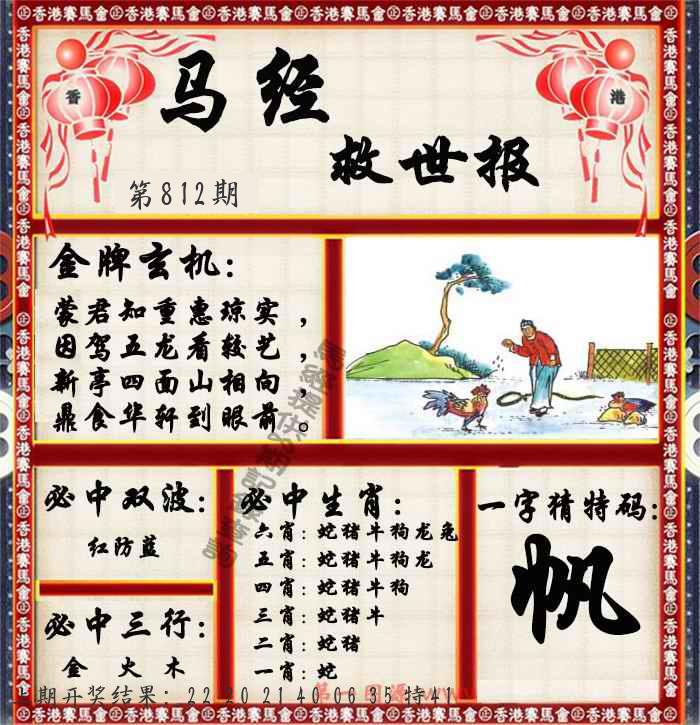 香港賽馬會
香
港
马经
救世报
第812期
金牌玄机:
蒙君知重惠琼实，
因驾五龙看较艺，
新亭四面山相向，
鼎食华轩到眼前。
必中双波:
红防蓝
必中三行:
金 火 木
必中生肖:
六肖: 蛇猪牛狗龙兔
五肖: 蛇猪牛狗龙
四肖: 蛇猪牛狗
三肖: 蛇猪牛
二肖: 蛇猪
一肖: 蛇
一字猜特码:
帆
期开奖结果: 22 20 21 40 06 35 特41